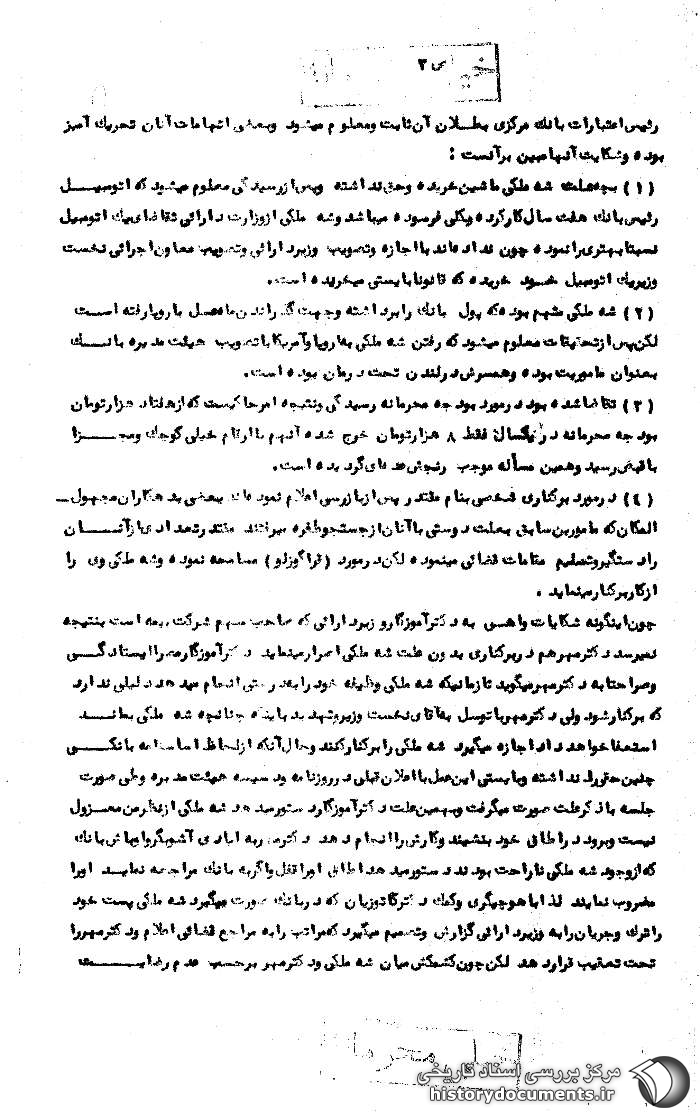 خیلی
ص ۳
رئیس اعتبارات بانك مرکزی بطلان آن ثابت ومعلوم میشود وبعضی اتهامات آنان تحریك آمیز
بوده وشکایت آنها مبین برآنست :
(۱) بچه علت شه ملکی ماشین خریده وحق نداشته وپس از رسیدگی معلوم میشود که اتومبیل
رئیس بانك هفت سال کارکرده وبکلی فرسوده میباشد وشه ملکی ازوزارت دارائی تقاضای یك اتومبیل
نسبتا بهتری را نموده چون نداده اند با اجازه وتصویب وزیر دارائی وتصویب معاون اجرائی نخست
وزیریك اتومبیل خود خریده که قانونا بایستی میخریده است.
(۲) شه ملکی متهم بوده که پول بانك را برداشته وجهت گذراندن ماه عسل باروپا رفته است
لکن پس از تحقیقات معلوم میشود که رفتن شه ملکی به اروپا وآمریکا با تصویب هیئت مدیره بانك
بعنوان ماموریت بوده وهمسرش درلندن تحت درمان بوده است.
(۳) تقاضا شده بود درمورد بودجه محرمانه رسیدگی ونتیجه امر حاکیست که ازهفتاد هزارتومان
بودجه محرمانه دریکسال فقط ۸ هزارتومان خرج شده آنهم با ارقام خیلی کوچك ومجزا
با قبض رسید وهمین مسأله موجب رنجش عده ای گردیده است.
(۴) درمورد برکناری شخصی بنام مقتدر پس از بازرسی اعلام نموده اند ببعضی بدهکاران مجهول
المکان که مامورین سابق بعلت دوستی با آنان ازجستجو طفره میرفتند مقتدر تعدادی از آنان
را دستگیر وتسلیم مقامات قضائی مینموده لکن درمورد (قراگوزلو) مسامحه نموده وشه ملکی وی را
از کار برکنار مینماید .
چون اینگونه شکایات واهی به دکترآموزگار وزیر دارائی که صاحب سهم شرکت بیمه است بنتیجه
نمیرسد دکترمهر هم دربرکناری بدون علت شه ملکی اصرار مینماید دکترآموزگار مصرا ایستادگی
وصراحتا به دکترمهر میگوید تا زمانیکه شه ملکی وظیفه خود را بدرستی انجام میدهد دلیلی ندارد
که برکنارشود ولی دکترمهر با توسل به آقای نخست وزیر وتهدید باینکه چنانچه شه ملکی بماند
استعفا خواهد داد اجازه میگیرد شه ملکی را برکنارکند وحال آنکه ازلحاظ اساسنامه بانکی
چنین حقی را نداشته ومیبایستی این عمل با اعلان قبلی درروزنامه وبوسیله هیئت مدیره وطی صورت
جلسه با ذکرعلت صورت میگرفت وبهمین علت دکترآموزگار دستورمیدهد شه ملکی ازنظرمن معزول
نیست وبرود دراطاق خود بنشیند وکارش را انجام دهد دکترمهر به ایادی آشوبگر واوباش بانك
که ازوجود شه ملکی ناراحت بودند دستورمیدهد اطاق اورا قفل واگر به بانك مراجعه نماید اورا
مضروب نمایند لذا با هوچیگری وکمك دکترکاتوزیان که دربانك صورت میگیرد شه ملکی پست خود
را ترك وجریان را به وزیر دارائی گزارش وتصمیم میگیرد که مراتب را به مراجع قضائی اعلام ودکترمهر را
تحت تعقیب قرار دهد لکن چون کشمکش میان شه ملکی ودکترمهر برحسب عدم رضایت
محرمانه
مرکز بررسی اسناد تاریخی
historydocuments.ir